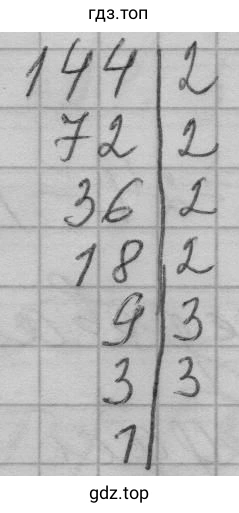 гдз.топ
144 | 2
72 | 2
36 | 2
18 | 2
9 | 3
3 | 3
1 |
gdz.top